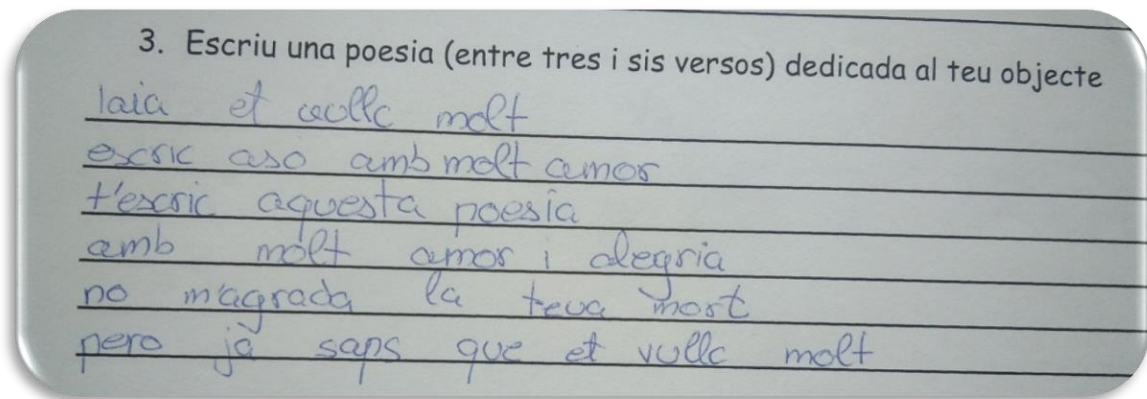 3. Escriu una poesia (entre tres i sis versos) dedicada al teu objecte
laia et vullc molt
escric aso amb molt amor
t'escric aquesta poesia
amb molt amor i alegria
no m'agrada la teva mort
pero jà saps que et vullc molt